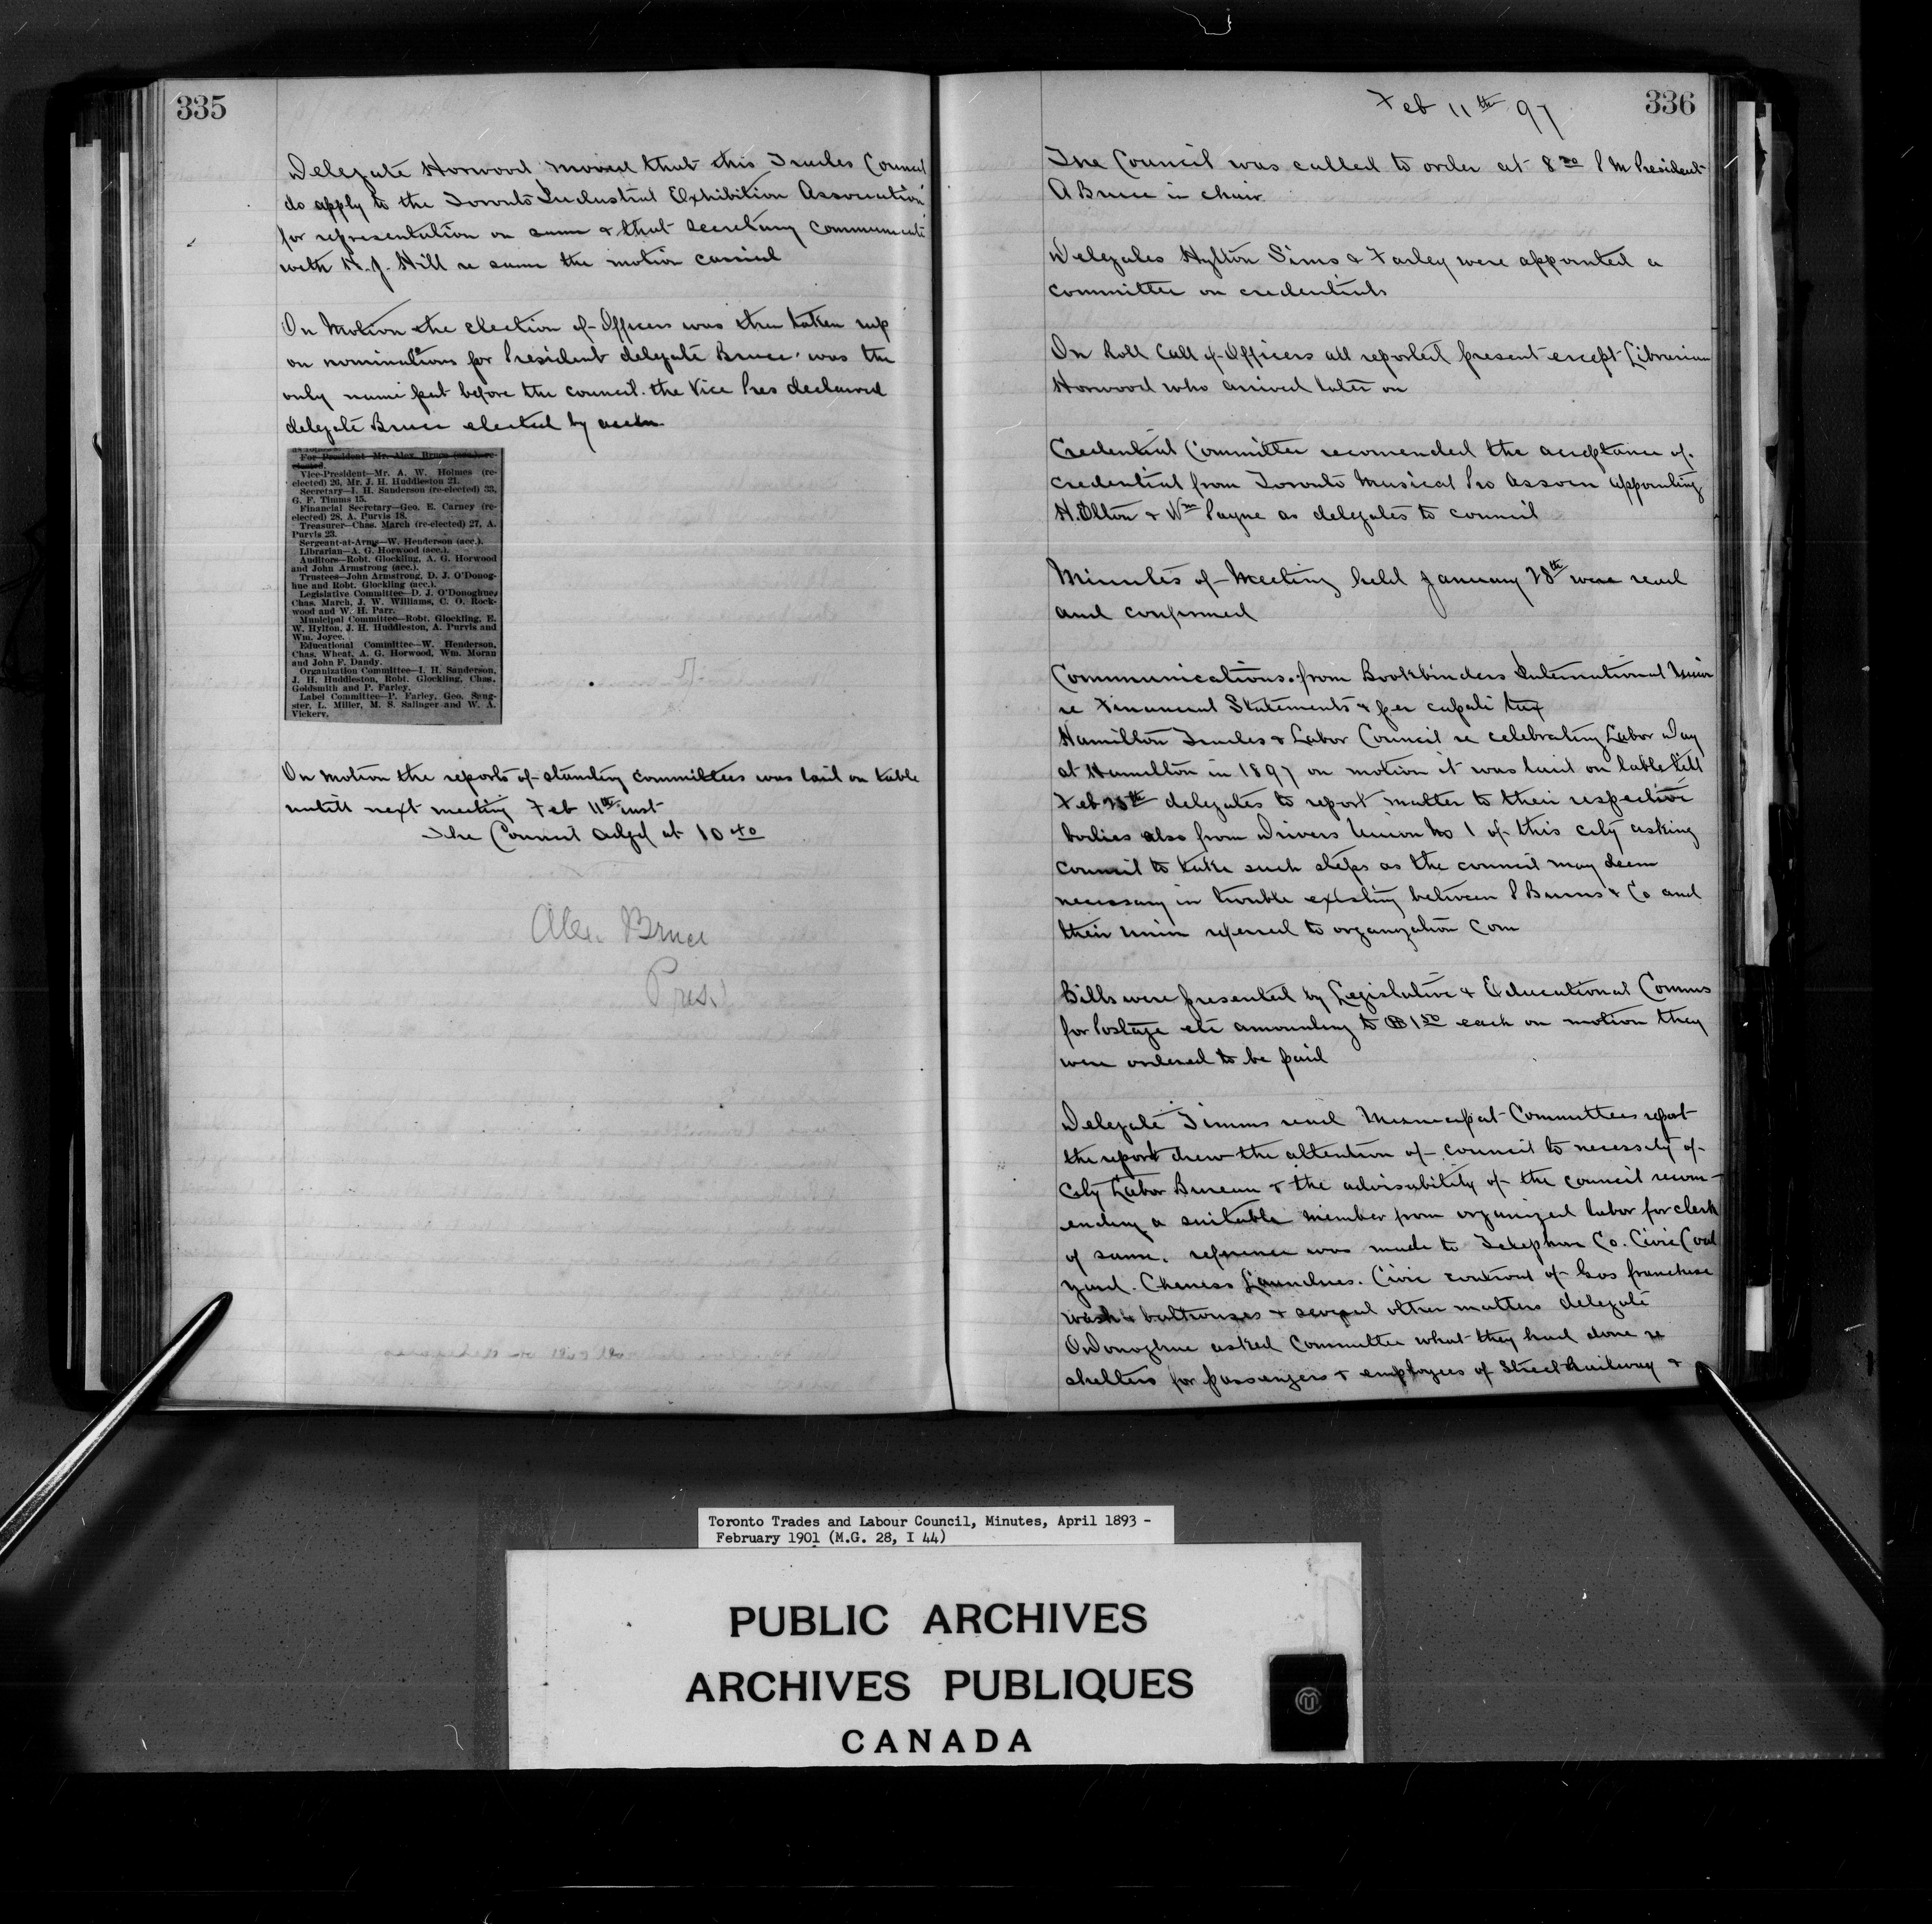 335
Delegate Horwood moved that this Trades Council
do apply to the Toronto Industrial Exhibition Association
for representation on same & that Secretary communicate
with H. J. Hill re same the motion carried
On Motion the election of Officers was then taken up
on nominations for President delegate Bruce was the
only name put before the council. the Vice Pres declared
delegate Bruce elected by accln
For President Mr. Alex. Bruce
elected.
Vice-President—Mr. A. W. Holmes (re-
elected) 26, Mr. J. H. Huddleston 21.
Secretary—I. H. Sanderson (re-elected) 33,
G. F. Timms 15.
Financial Secretary—Geo. E. Carney (re-
elected) 28, A. Purvis 18.
Treasurer—Chas. March (re-elected) 27, A.
Purvis 23.
Sergeant-at-Arms—W. Henderson (acc.).
Librarian—A. G. Horwood (acc.).
Auditors—Robt. Glockling, A. G. Horwood
and John Armstrong (acc.).
Trustees—John Armstrong, D. J. O'Donog-
hue and Robt. Glockling (acc.).
Legislative Committee—D. J. O'Donoghue,
Chas. March, J. W. Williams, C. O. Rock-
wood and W. H. Parr.
Municipal Committee—Robt. Glockling, E.
W. Hylton, J. H. Huddleston, A. Purvis and
Wm. Joyce.
Educational Committee—W. Henderson,
Chas. Wheat, A. G. Horwood, Wm. Moran
and John F. Dandy.
Organization Committee—I. H. Sanderson,
J. H. Huddleston, Robt. Glockling, Chas.
Goldsmith and P. Farley.
Label Committee—P. Farley, Geo. Sang-
ster, L. Miller, M. S. Salinger and W. A.
Vickery.
On motion the reports of standing committees was laid on table
untill next meeting Feb 11th inst
The Council adjd at 10 40
Alex. Bruce
Pres.
Feb 11th 97
336
The Council was called to order at 8 PM President
A Bruce in chair
Delegates Hylton Sims & Farley were appointed a
committee on credentials
On Roll Call of Officers all reported present except Librarian
Horwood who arrived later on
Credential Committee recomended the acceptance of
credential from Toronto Musical Pro Assocn appointing
H. Olton & Wm Payne as delegates to council
Minutes of Meeting held January 28th were read
and confirmed
Communications. from Bookbinders International Union
re Financial Statements & per capati tax
Hamilton Trades & Labor Council re celebrating Labor Day
at Hamilton in 1897 on motion it was laid on table till
Feb 25th delegates to report matter to their respective
bodies also from Drivers Union No 1 of this city asking
council to take such steps as the council may deem
necessary in trouble existing between P Burns & Co and
their union referred to organization Com
Bills were presented by Legislative & Educational Comms
for Postage etc amounting to $1 50 each on motion they
were ordered to be paid
Delegate Timms read Municipal Committees report
the report drew the attention of council to necessity of
City Labor Bureau & the advisability of the council recom-
ending a suitable member from organized labor for clerk
of same. reference was made to Telephone Co. Civic Coal
yard. Chenese Laundries. Civic control of Gas franchise
wash & bathouses & several other matters delegate
ODonoghue asked Committee what they had done re
shelters for passengers & employees of Street Railway &
Toronto Trades and Labour Council, Minutes, April 1893 -
February 1901 (M.G. 28, I 44)
PUBLIC ARCHIVES
ARCHIVES PUBLIQUES
CANADA